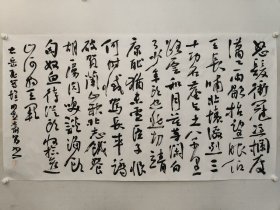 怒髮衝冠憑欄處
瀟瀟雨歇抬望眼仰
天長嘯壯懷激烈三
十功名塵與土八千里
路雲和月莫等閒白
了少年頭空悲切靖
康恥猶未雪臣子恨
何時滅駕長車踏
破賀蘭山缺壯志飢餐
胡虜肉笑談渴飲
匈奴血待從頭收拾舊
山河朝天闕